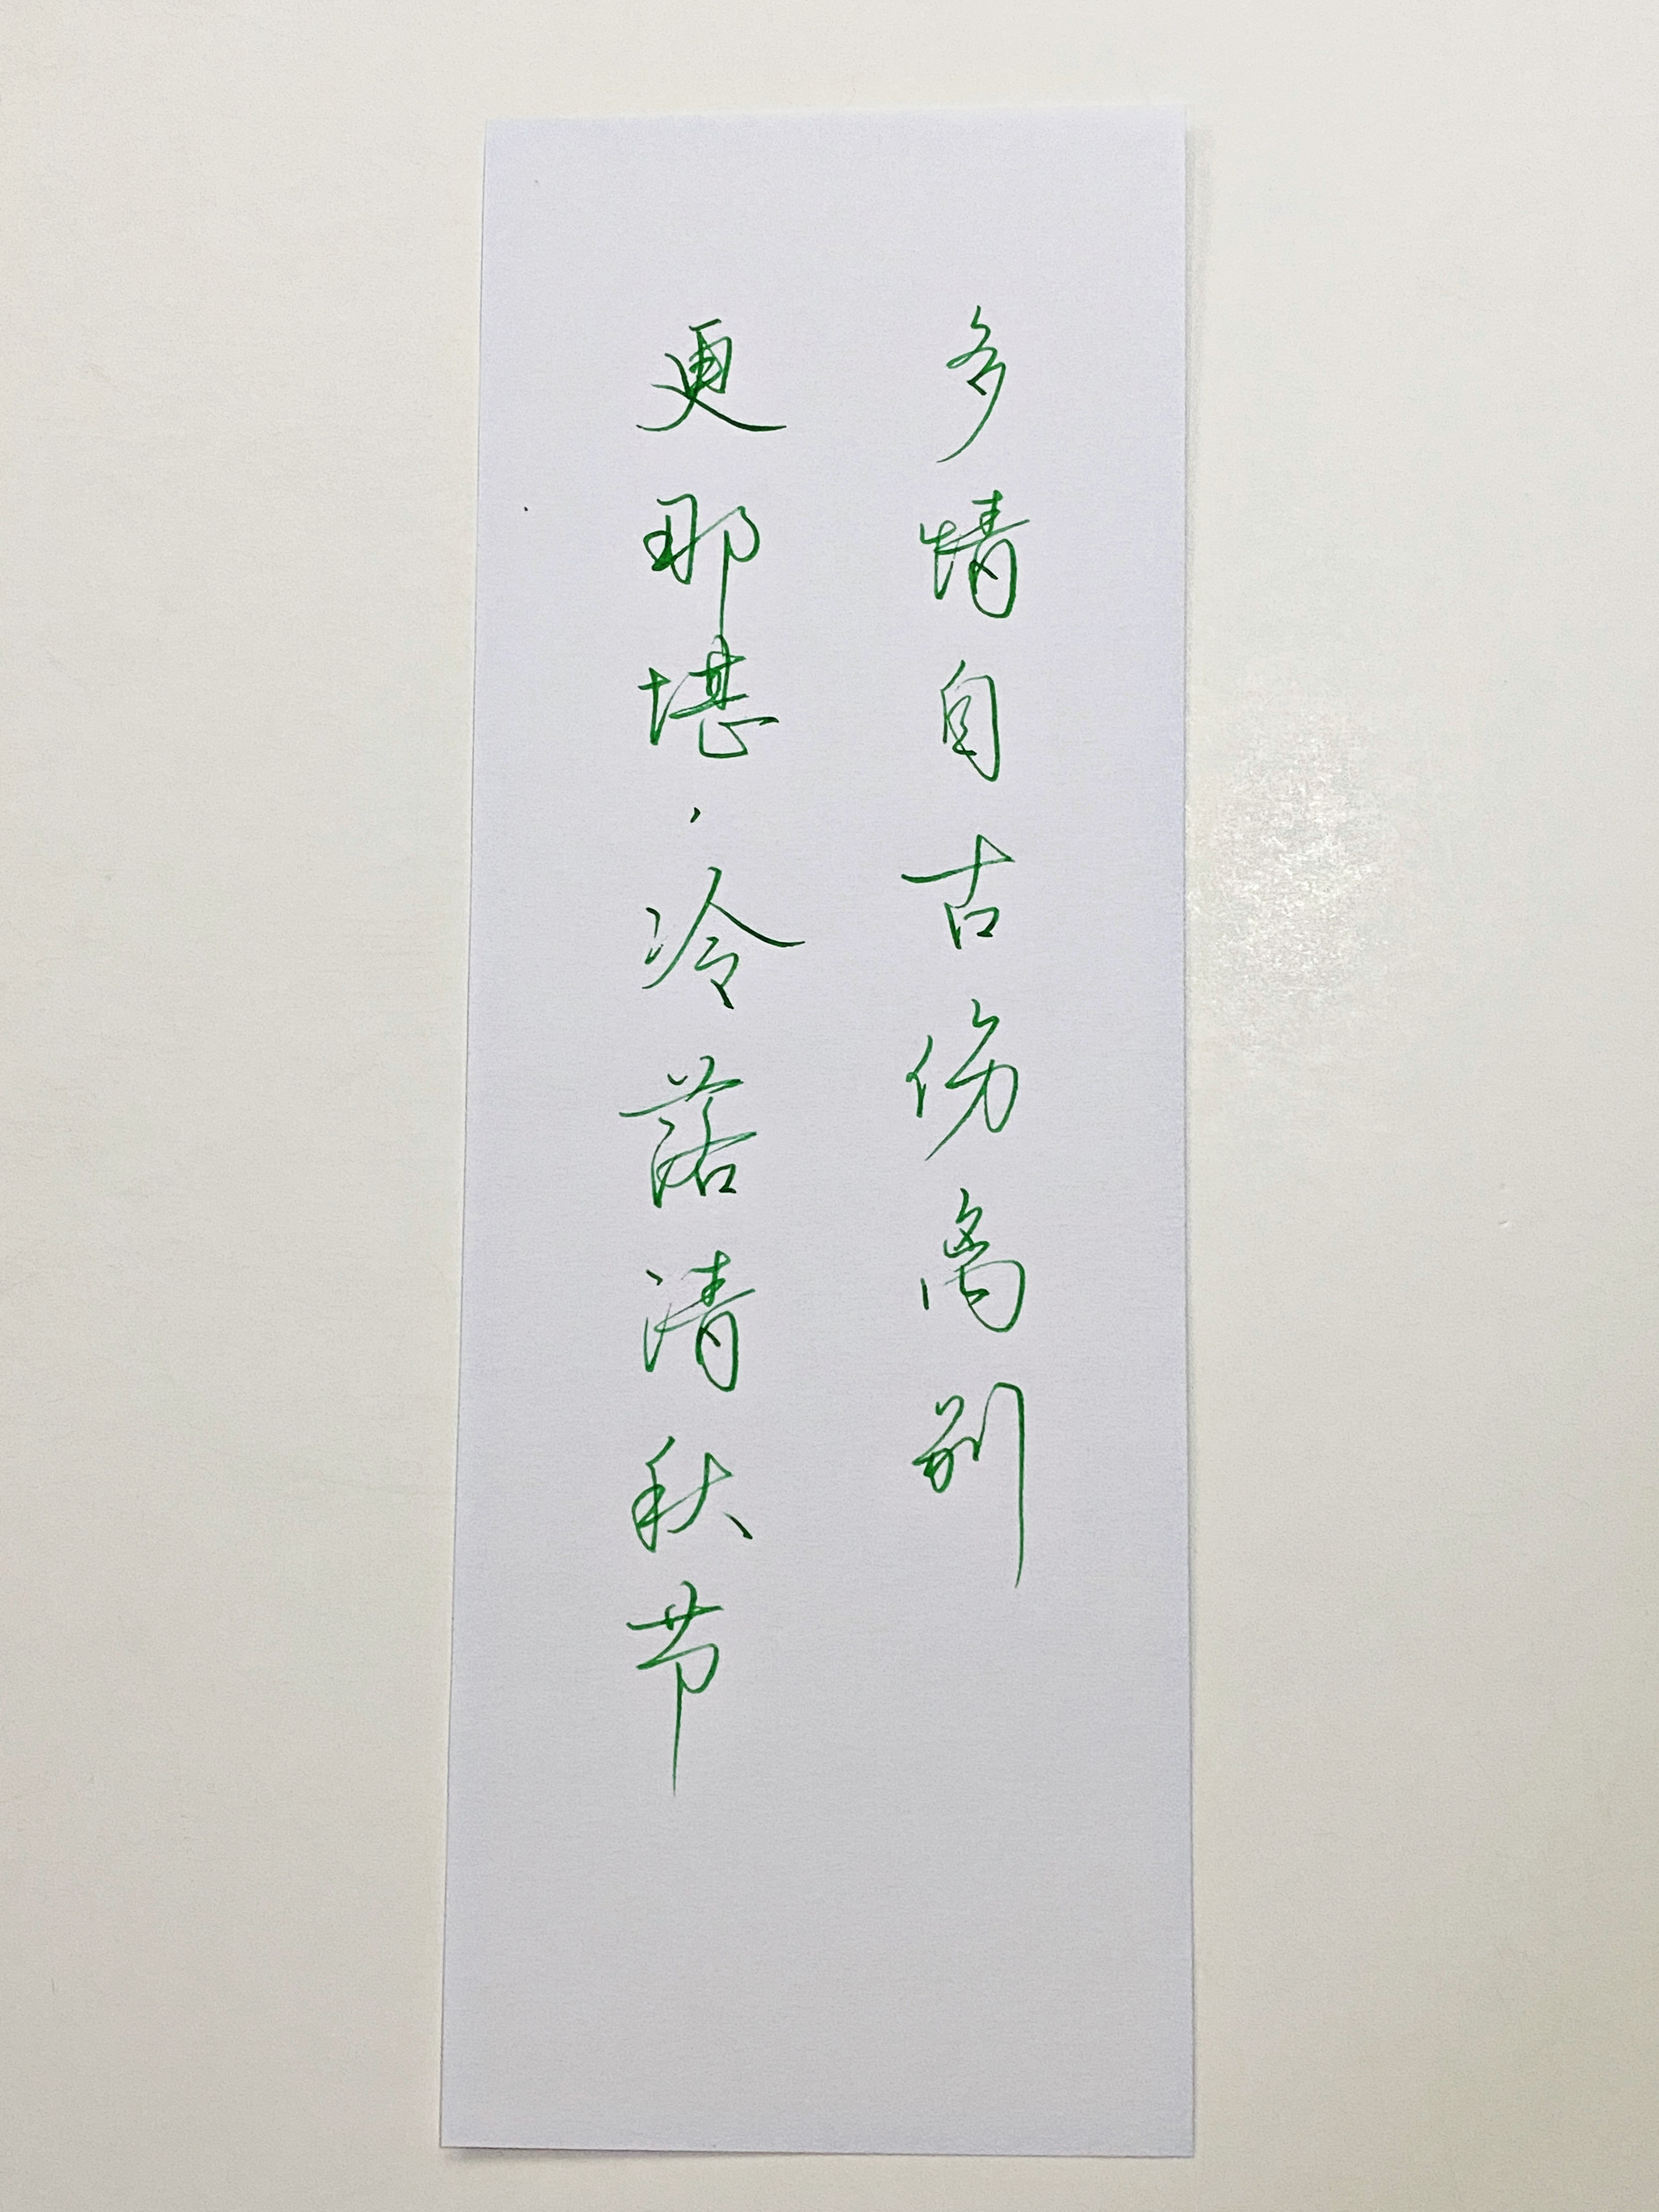 多情自古伤离别
更那堪，冷落清秋节